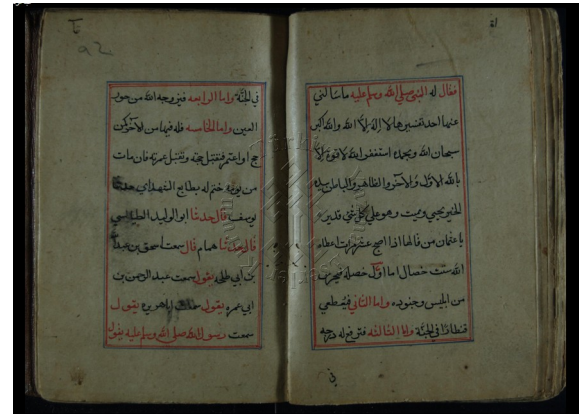 فقال له النبي صلي الله وسلم عليه ماسألني
عنها احد تفسيرها لا اله الا الله والله اكبر
سبحان الله وبحمده استغفر الله لا قوة الا
بالله الاول والاخر والظاهر والباطن بيده
الخير يحيي ويميت وهو على كل شئ قدير
يا عثمان من قالها اذا اصبح عشر مرات اعطاه
الله ست خصال اما اول خصلة فيحرس
من ابليس وجنوده واما الثاني فيعطى
قنطارا في الجنة واما الثالثة فترفع له درجه
في
في الجنة واما الرابعه فيزوجه الله من حور
العين واما الخامسه فله فيها من الاجر كمن
حج واعتمر فتقبل حجه وتقبل عمرته فان مات
من يومه ختم له بطابع الشهداي حدثنا
يوسف قال حدثنا ابو الوليد الطيالسي
قال حدثنا همام قال سمعت اسحق بن عبد الله
بن ابي طلحه يقول سمعت عبد الرحمن بن
ابي عمره يقول سمعت ابا هريره يقول
سمعت رسول الله صلى الله وسلم عليه يقول